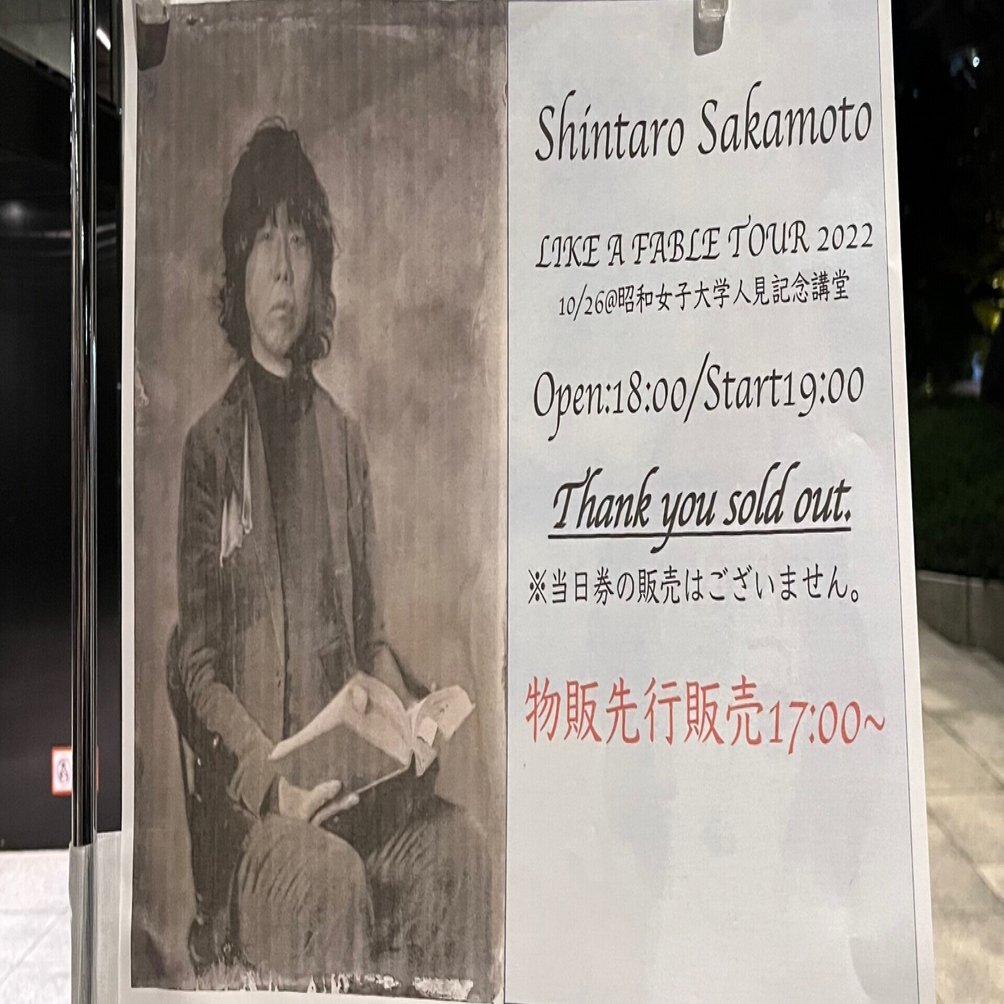 Shintaro Sakamoto
LIKE A FABLE TOUR 2022
10/26@昭和女子大学人見記念講堂
Open:18:00/Start19:00
Thank you sold out.
※当日券の販売はございません。
物販先行販売17:00~